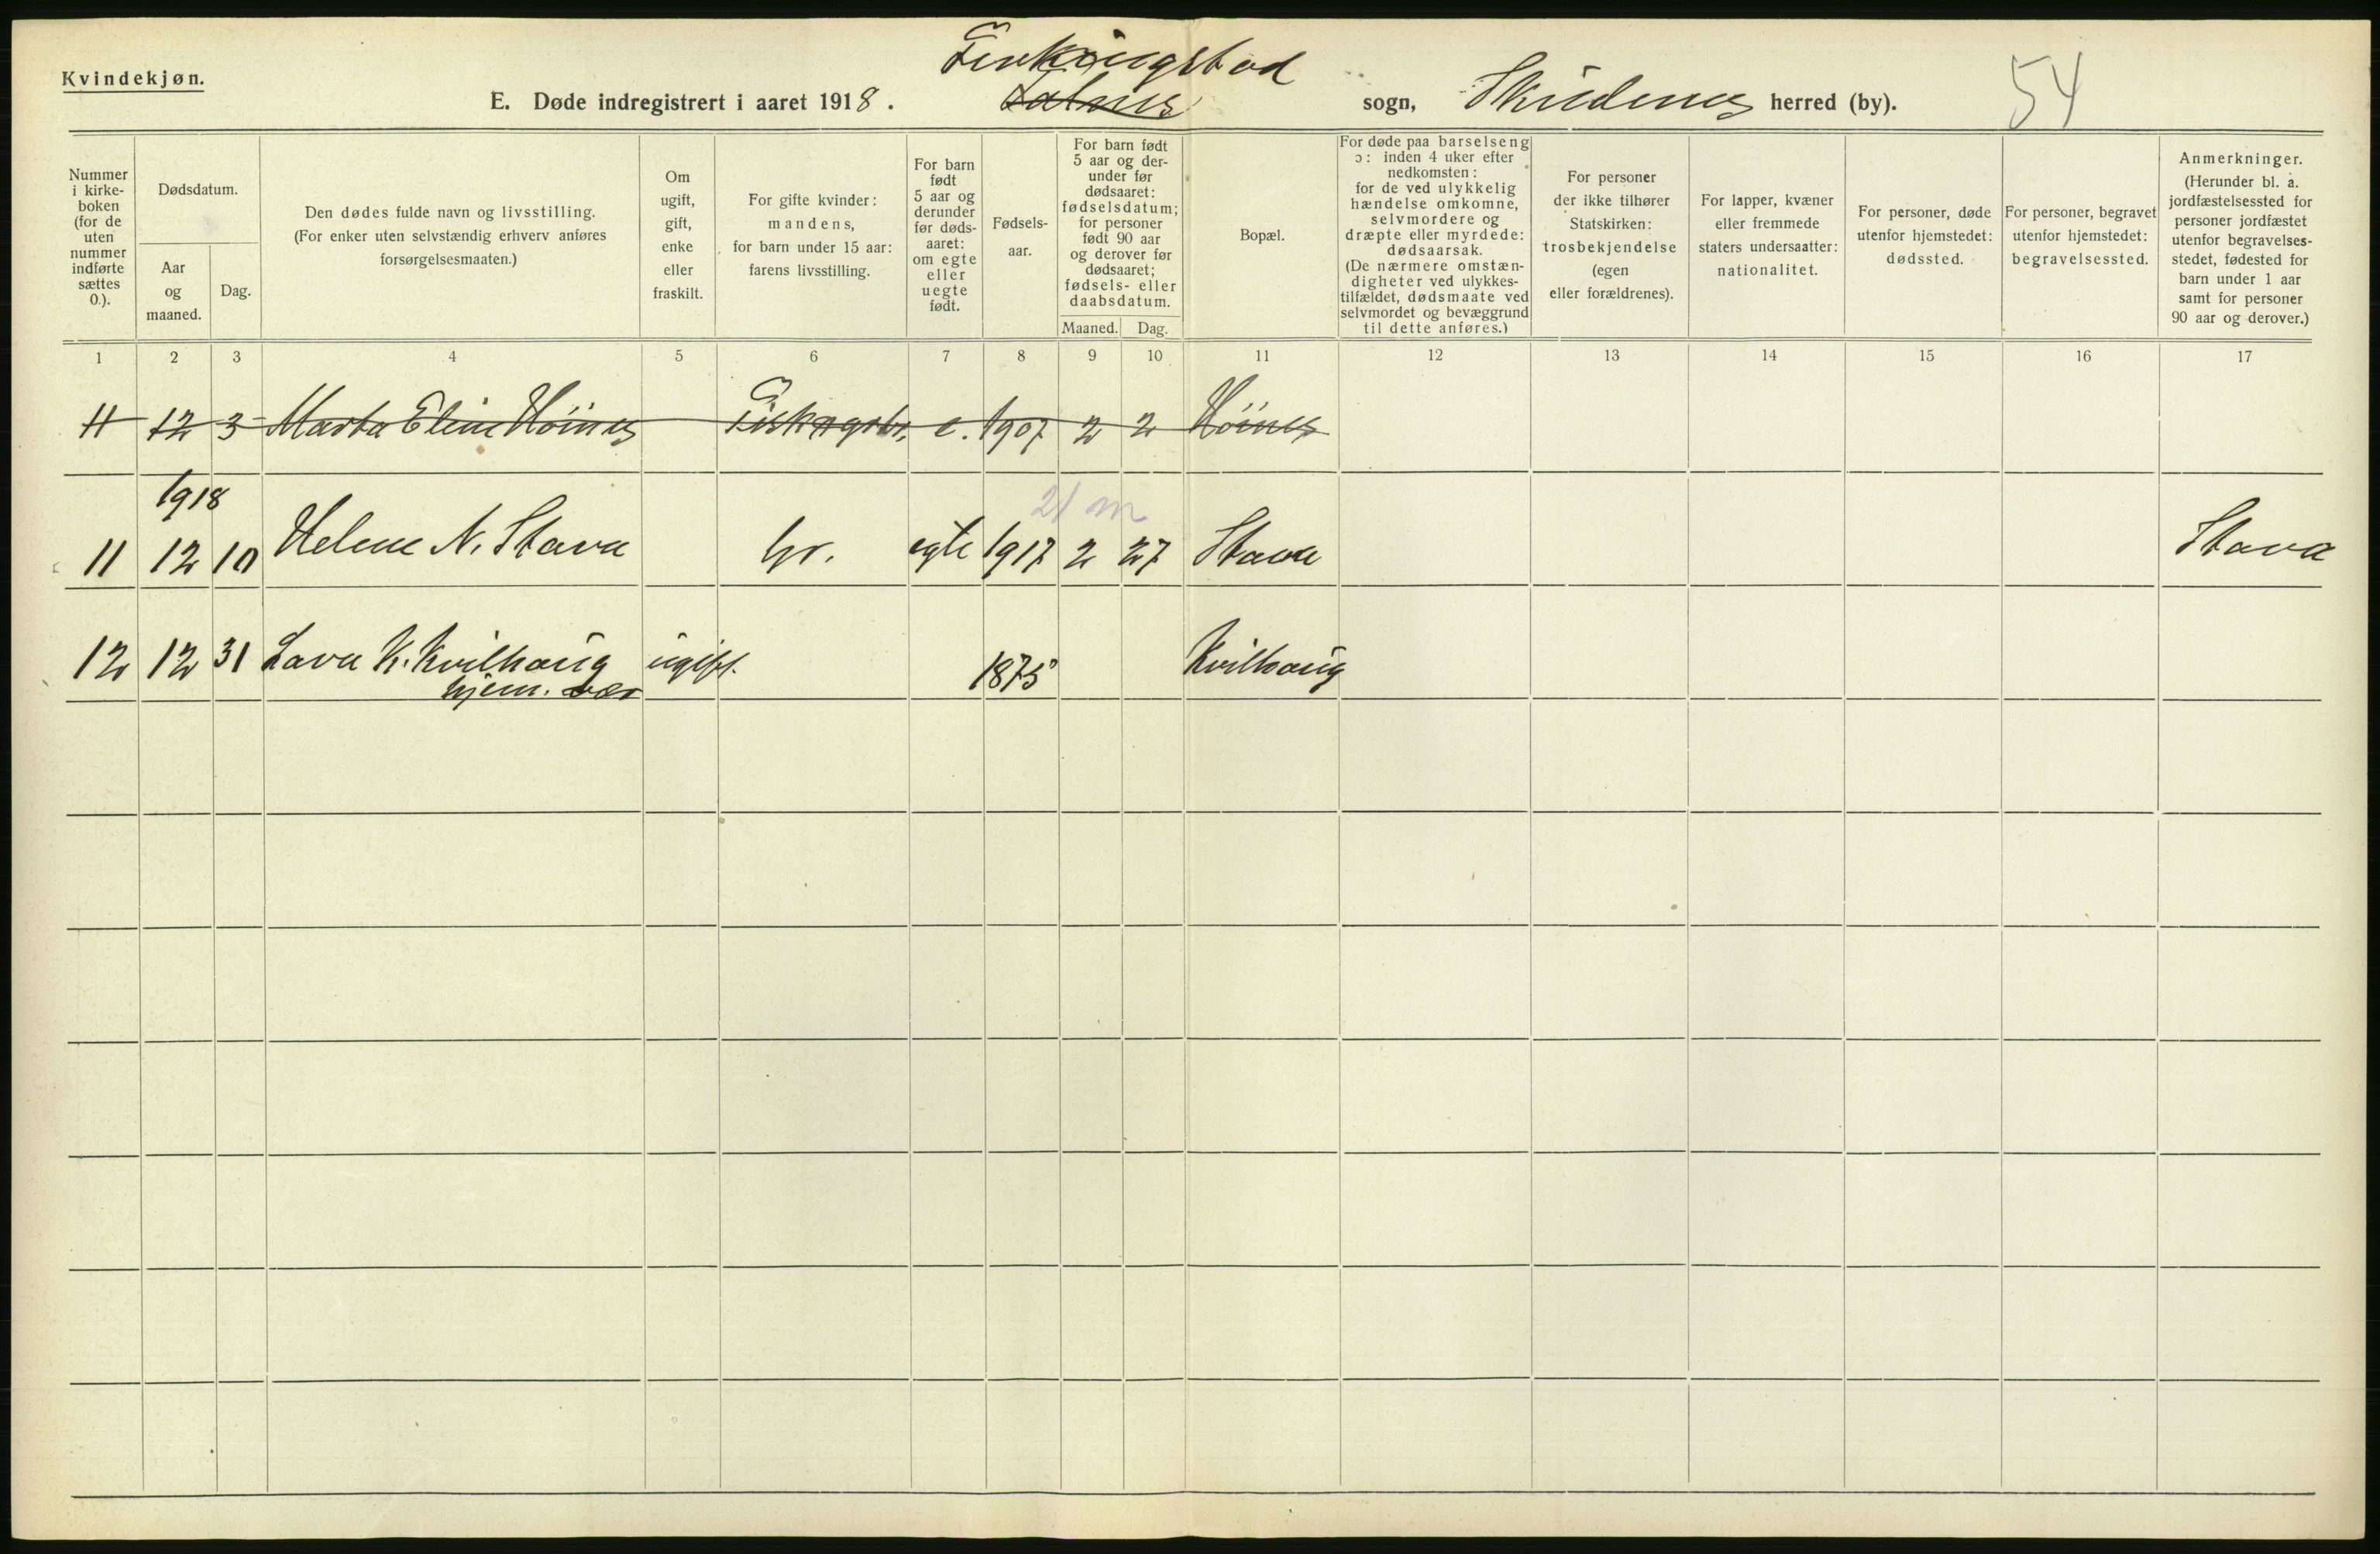 Kvindekjøn.
E. Døde indregistrert i aaret 1918. Ferkingstad sogn, Skudenes herred (by). 54
Falnes
Nummer i kirkeboken (for de uten nummer indførte sættes 0.).
Dødsdatum.
Aar og maaned.
Dag.
Den dødes fulde navn og livsstilling.
(For enker uten selvstændig erhverv anføres
forsørgelsesmaaten.)
Om ugift, gift, enke eller fraskilt.
For gifte kvinder:
mandens,
for barn under 15 aar:
farens livsstilling.
For barn født 5 aar og derunder før dødsaaret: om egte eller uegte født.
Fødselsaar.
For barn født 5 aar og derunder før dødsaaret: fødselsdatum; for personer født 90 aar og derover før dødsaaret; fødsels- eller daabsdatum.
Maaned. Dag.
Bopæl.
For døde paa barselseng
ɔ: inden 4 uker efter
nedkomsten:
for de ved ulykkelig
hændelse omkomne,
selvmordere og
dræpte eller myrdede:
dødsaarsak.
(De nærmere omstæn-
digheter ved ulykkes-
tilfældet, dødsmaate ved
selvmordet og bevæggrund
til dette anføres.)
For personer
der ikke tilhører
Statskirken:
trosbekjendelse
(egen
eller forældrenes).
For lapper, kvæner
eller fremmede
staters undersaatter:
nationalitet.
For personer, døde
utenfor hjemstedet:
dødssted.
For personer, begravet
utenfor hjemstedet:
begravelsessted.
Anmerkninger.
(Herunder bl. a.
jordfæstelsessted for
personer jordfæstet
utenfor begravelses-
stedet, fødested for
barn under 1 aar
samt for personer
90 aar og derover.)
1 2 3 4 5 6 7 8 9 10 11 12 13 14 15 16 17
11 12 3 Marta Eline Höines e. 1907 2 2 Höines
1918 21 m
11 12 10 Helene N. Stava gr. egte 1917 2 27 Stava Stava
12 12 31 Lava K. Kvilhaug ugift. 1875 Kvilhaug
hjem. vær